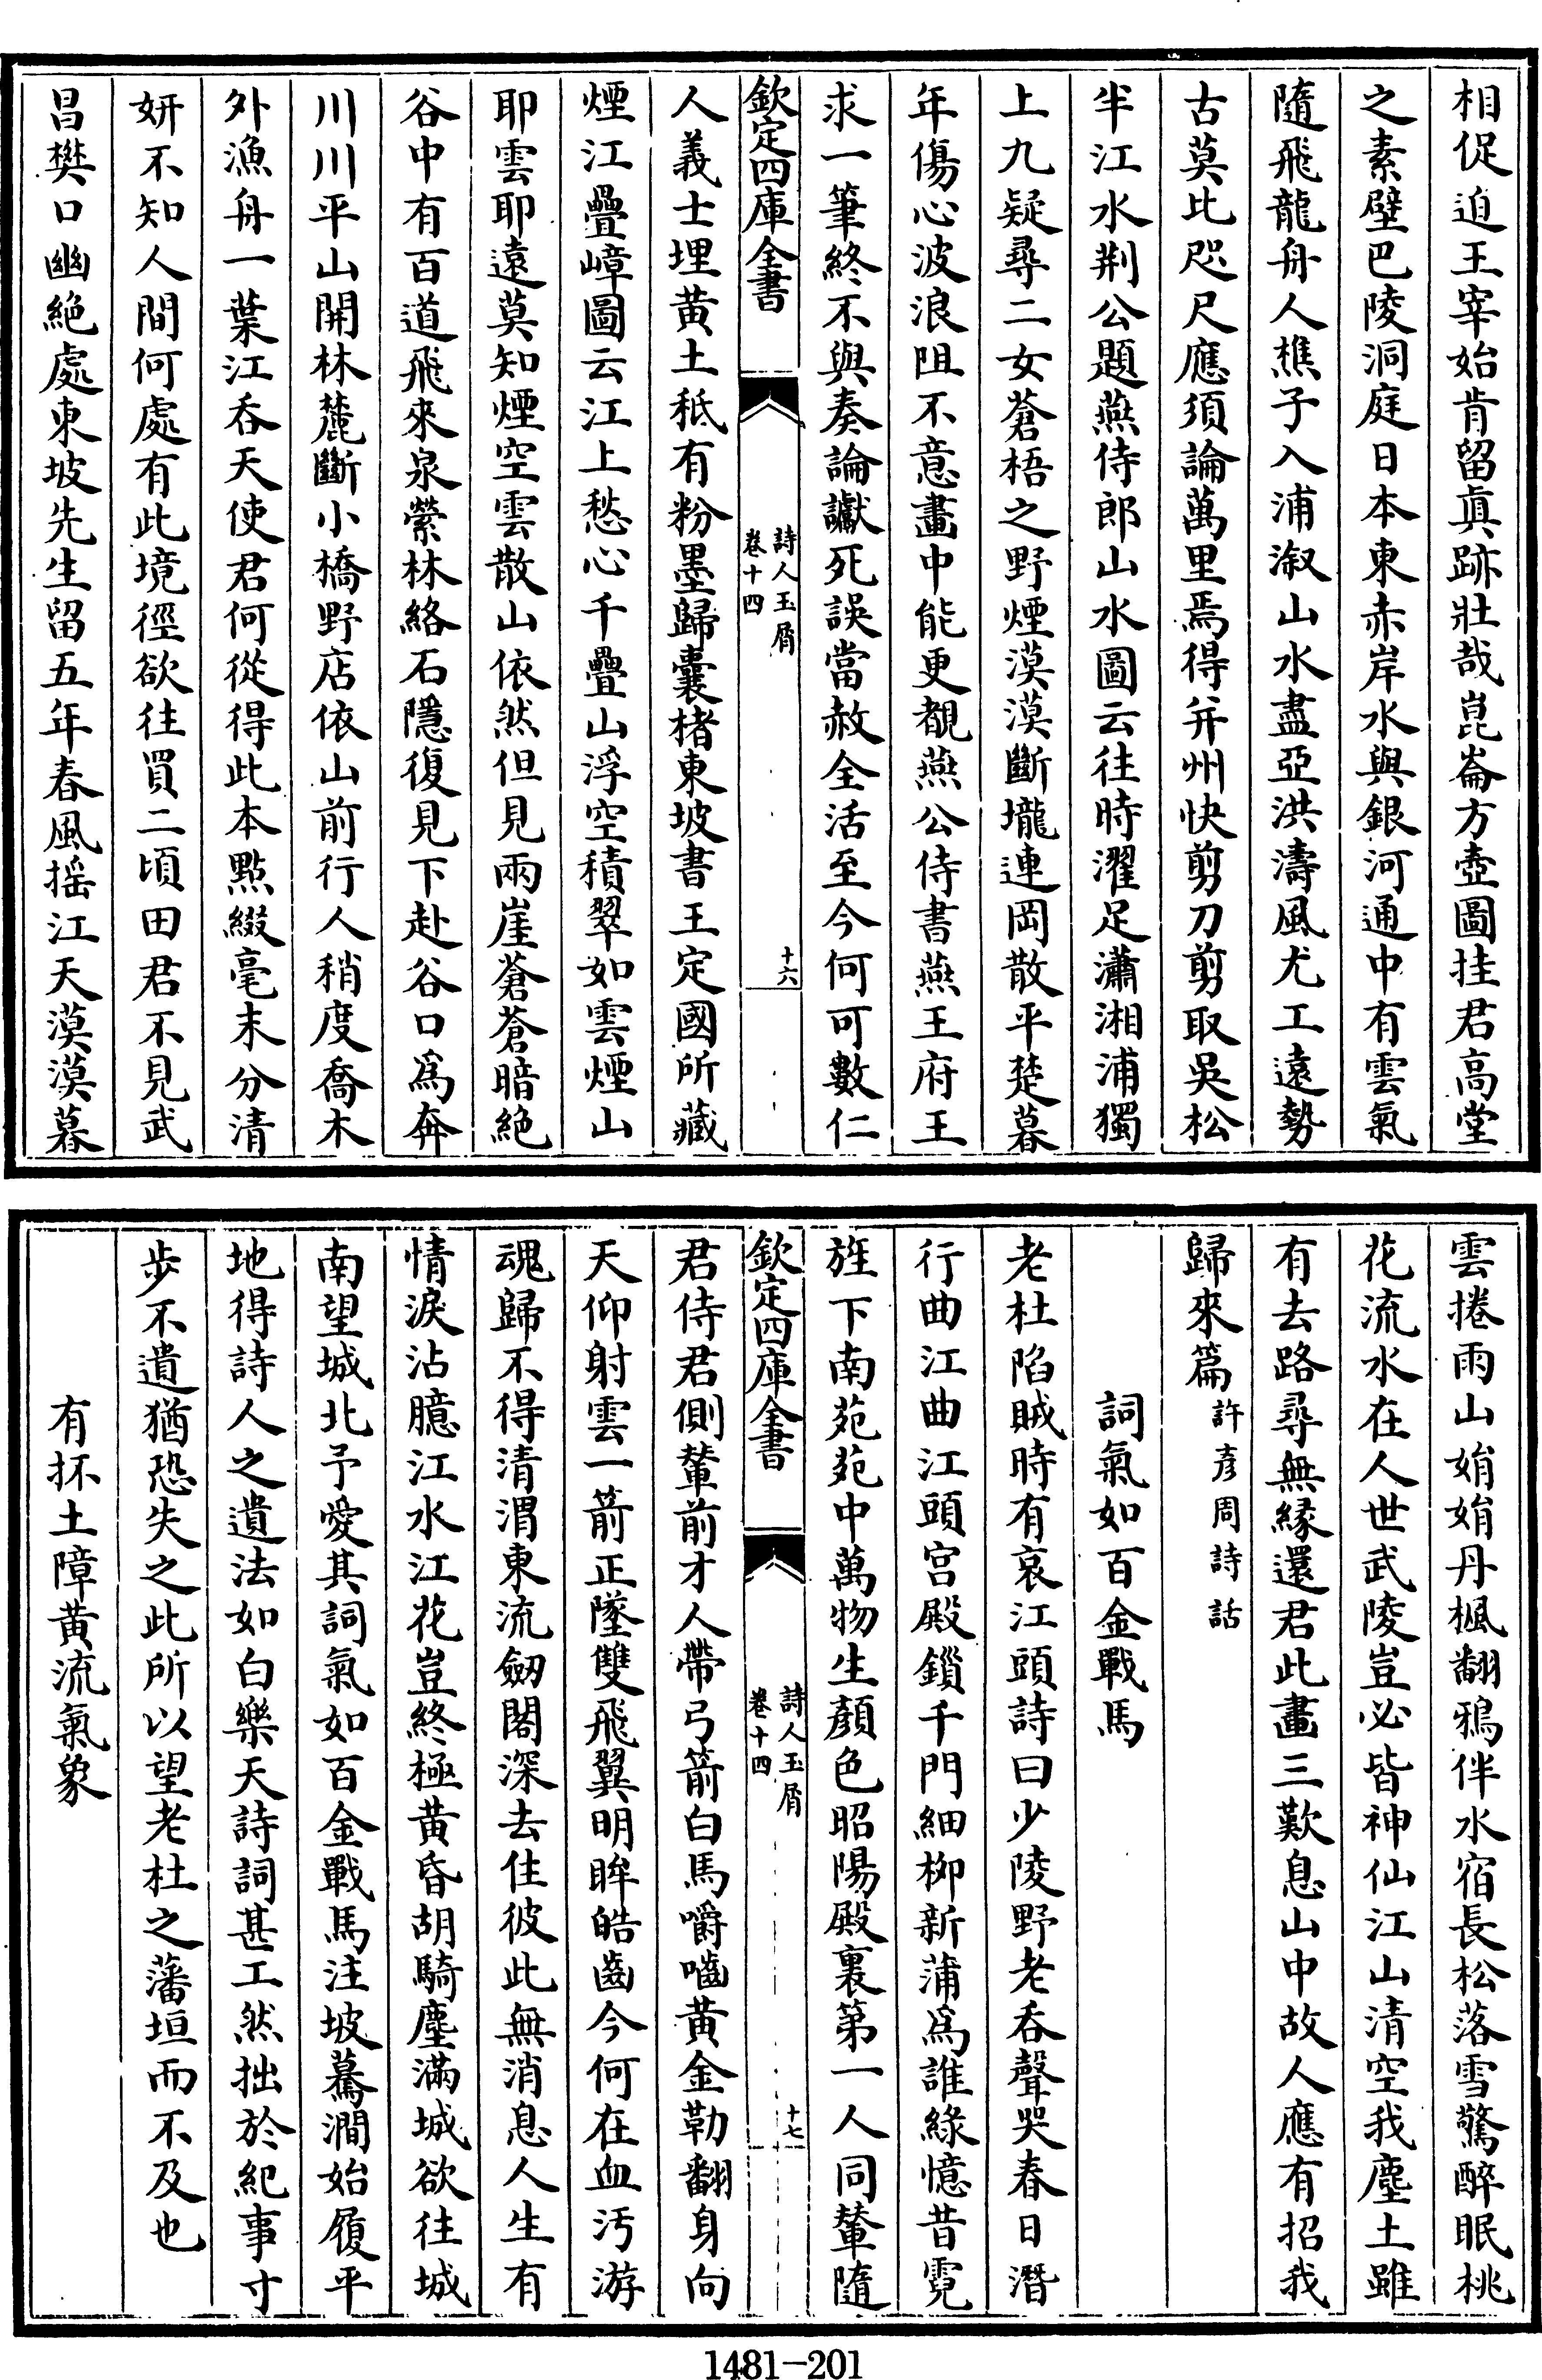 相促迫王宰始肯留眞跡壯哉崑崙方壺圖挂君高堂
之素壁巴陵洞庭日本東赤岸水與銀河通中有雲氣
隨飛龍舟人樵子入浦漵山水盡亞洪濤風尤工遠勢
古莫比咫尺應須論萬里焉得并州快剪刀剪取吳松
半江水荆公題燕侍郎山水圖云往時濯足瀟湘浦獨
上九疑尋二女蒼梧之野煙漠漠斷壠連岡散平楚暮
年傷心波浪阻不意畫中能更覩燕公侍書燕王府王
求一筆終不與奏論讞死誤當赦全活至今何可數仁
欽定四庫全書
詩人玉屑
卷十四
十六
人義士埋黄土秪有粉墨歸囊楮東坡書王定國所藏
煙江疊嶂圖云江上愁心千疊山浮空積翠如雲煙山
耶雲耶遠莫知煙空雲散山依然但見兩崖蒼蒼暗絶
谷中有百道飛來泉縈林絡石隱復見下赴谷口爲奔
川川平山開林麓斷小橋野店依山前行人稍度喬木
外漁舟一葉江吞天使君何從得此本點綴毫末分清
妍不知人間何處有此境徑欲往買二頃田君不見武
昌樊口幽絶處東坡先生留五年春風揺江天漠漠暮
雲捲雨山娟娟丹楓翻鴉伴水宿長松落雪驚醉眠桃
花流水在人世武陵豈必皆神仙江山清空我塵土雖
有去路尋無緣還君此畫三歎息山中故人應有招我
歸來篇許彥周詩話
詞氣如百金戰馬
老杜陷賊時有哀江頭詩曰少陵野老吞聲哭春日潛
行曲江曲江頭宫殿鎖千門細柳新蒲爲誰綠憶昔霓
旌下南苑苑中萬物生顏色昭陽殿裏第一人同輦隨
欽定四庫全書
詩人玉屑
卷十四
十七
君侍君側輦前才人帶弓箭白馬嚼嚙黄金勒翻身向
天仰射雲一箭正墜雙飛翼明眸皓齒今何在血汚游
魂歸不得清渭東流劒閣深去住彼此無消息人生有
情淚沾臆江水江花豈終極黄昏胡騎塵滿城欲往城
南望城北予愛其詞氣如百金戰馬注坡驀澗始履平
地得詩人之遺法如白樂天詩詞甚工然拙於紀事寸
步不遺猶恐失之此所以望老杜之藩垣而不及也
有抔土障黄流氣象
1481-201